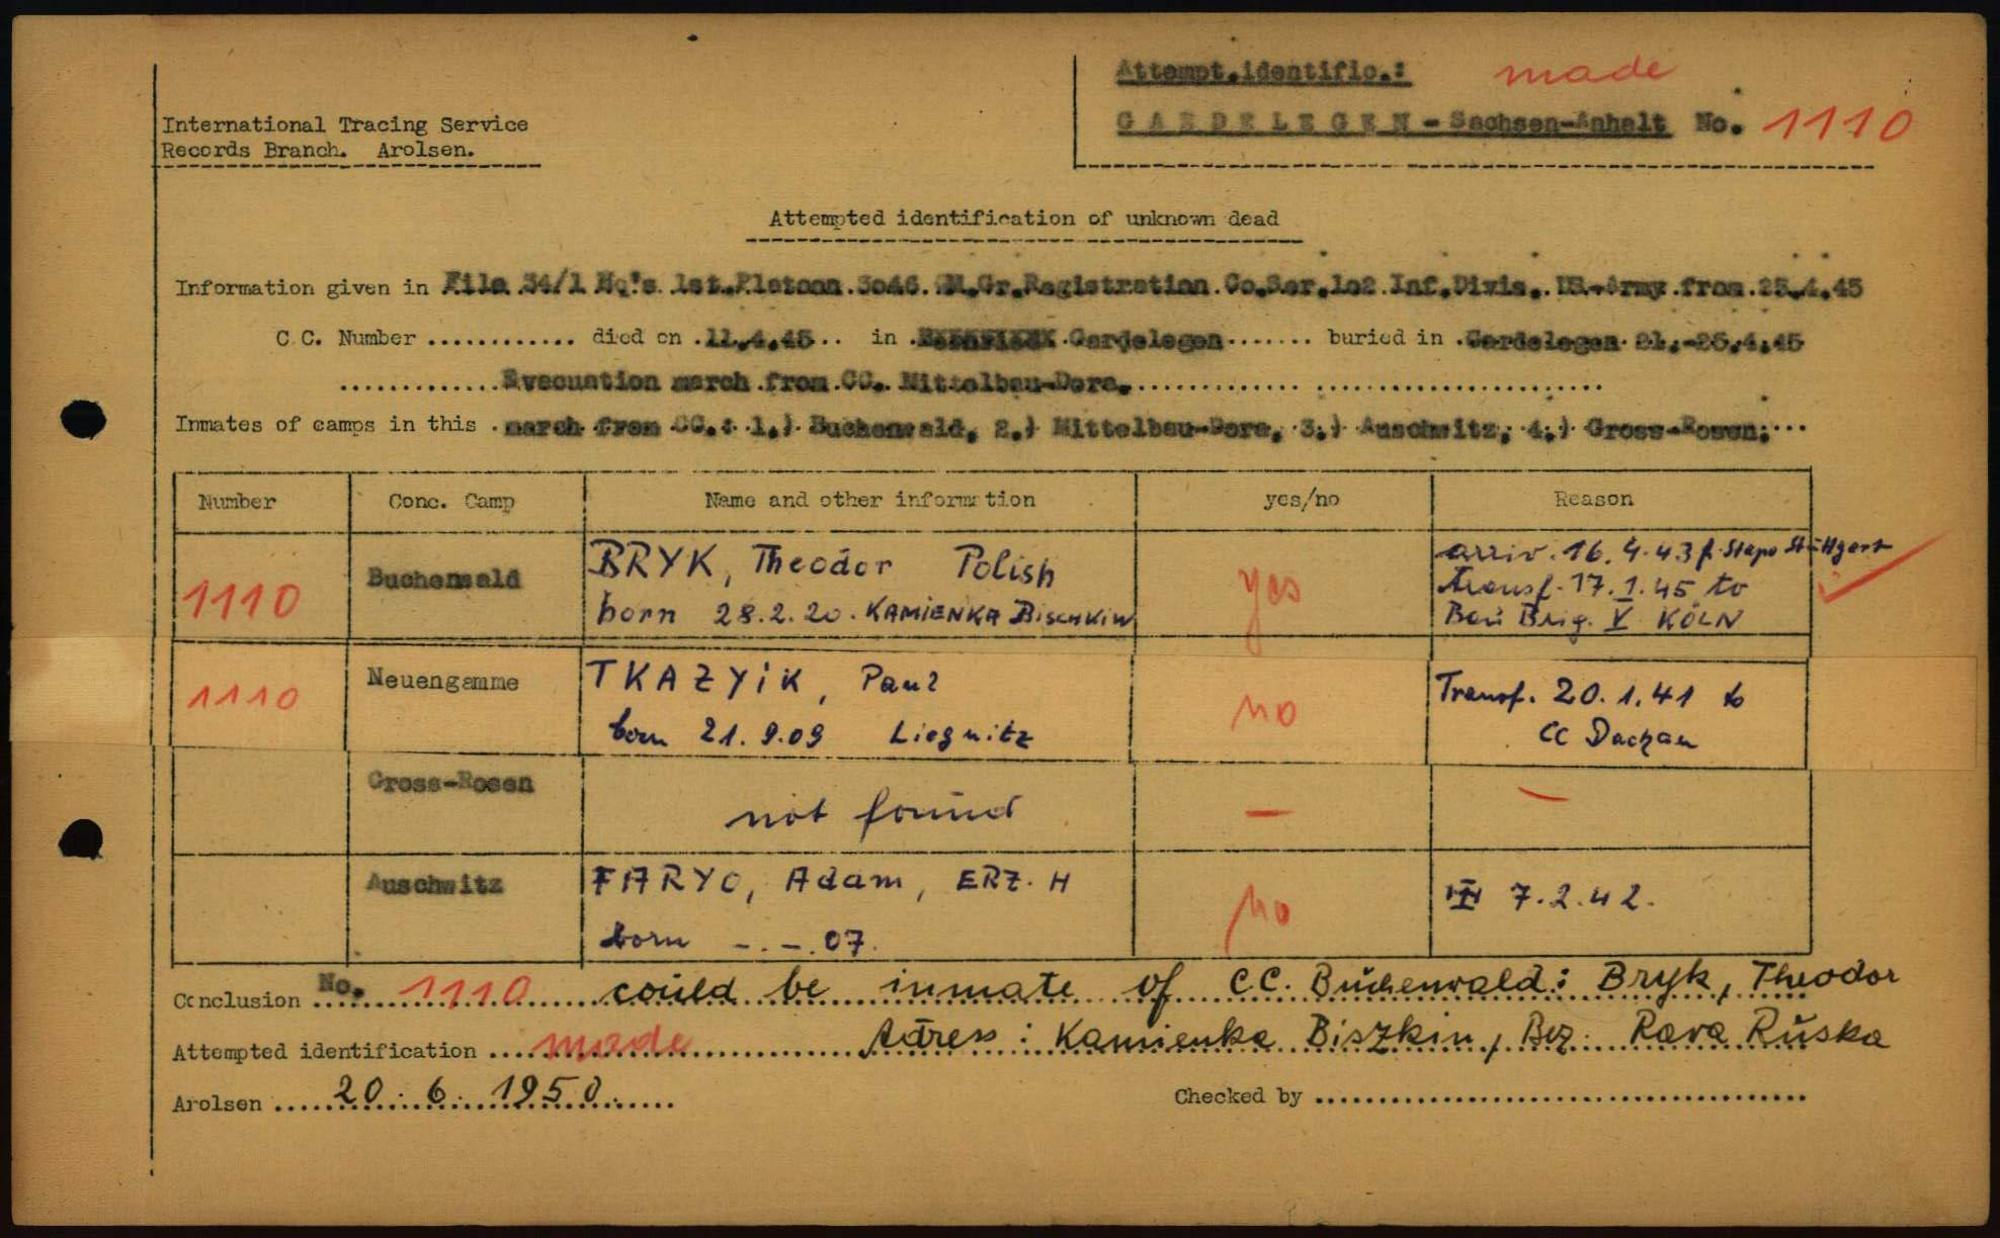 Attempt.identific.: made
GARDELEGEN - Sachsen-Anhalt No. 1110
International Tracing Service
Records Branch. Arolsen.
Attempted identification of unknown dead
Information given in File 34/1 Hq's 1st.Platoon.3046. QM.Gr.Registration.Co.Ser.102 Inf.Divis. US.-Army from 25.4.45
C.C. Number ............ died on .11.4.45.. in Gardelegen....... buried in .Gardelegen 21.-25.4.45
.............Evacuation march from CC. Mittelbau-Dora..............................
Inmates of camps in this .march from CC.: 1.) Buchenwald, 2.) Mittelbau-Dora, 3.) Auschwitz, 4.) Gross-Rosen;...
Number Conc. Camp Name and other information yes/no Reason
1110 Buchenwald BRYK, Theodor Polish yes arriv. 16.4.43 f. Stapo Stuttgart
born 28.2.20. KAMIENKA transf. 17.1.45 to
Bau Brig. V KÖLN
1110 Neuengamme TKAZYiK, Paul no Transf. 20.1.41 to
born 21.9.09 Liegnitz CC Dachau
Gross-Rosen not found — —
Auschwitz FARYO, Adam, ERZ. H no III 7.2.42.
born -.-.07.
Conclusion No. 1110 could be inmate of CC. Buchenwald: Bryk, Theodor
Attempted identification ....made.... Adress: Kamienka Biszkin, Bez. Rava Ruska
Arolsen ....20.6.1950........ Checked by ......................................